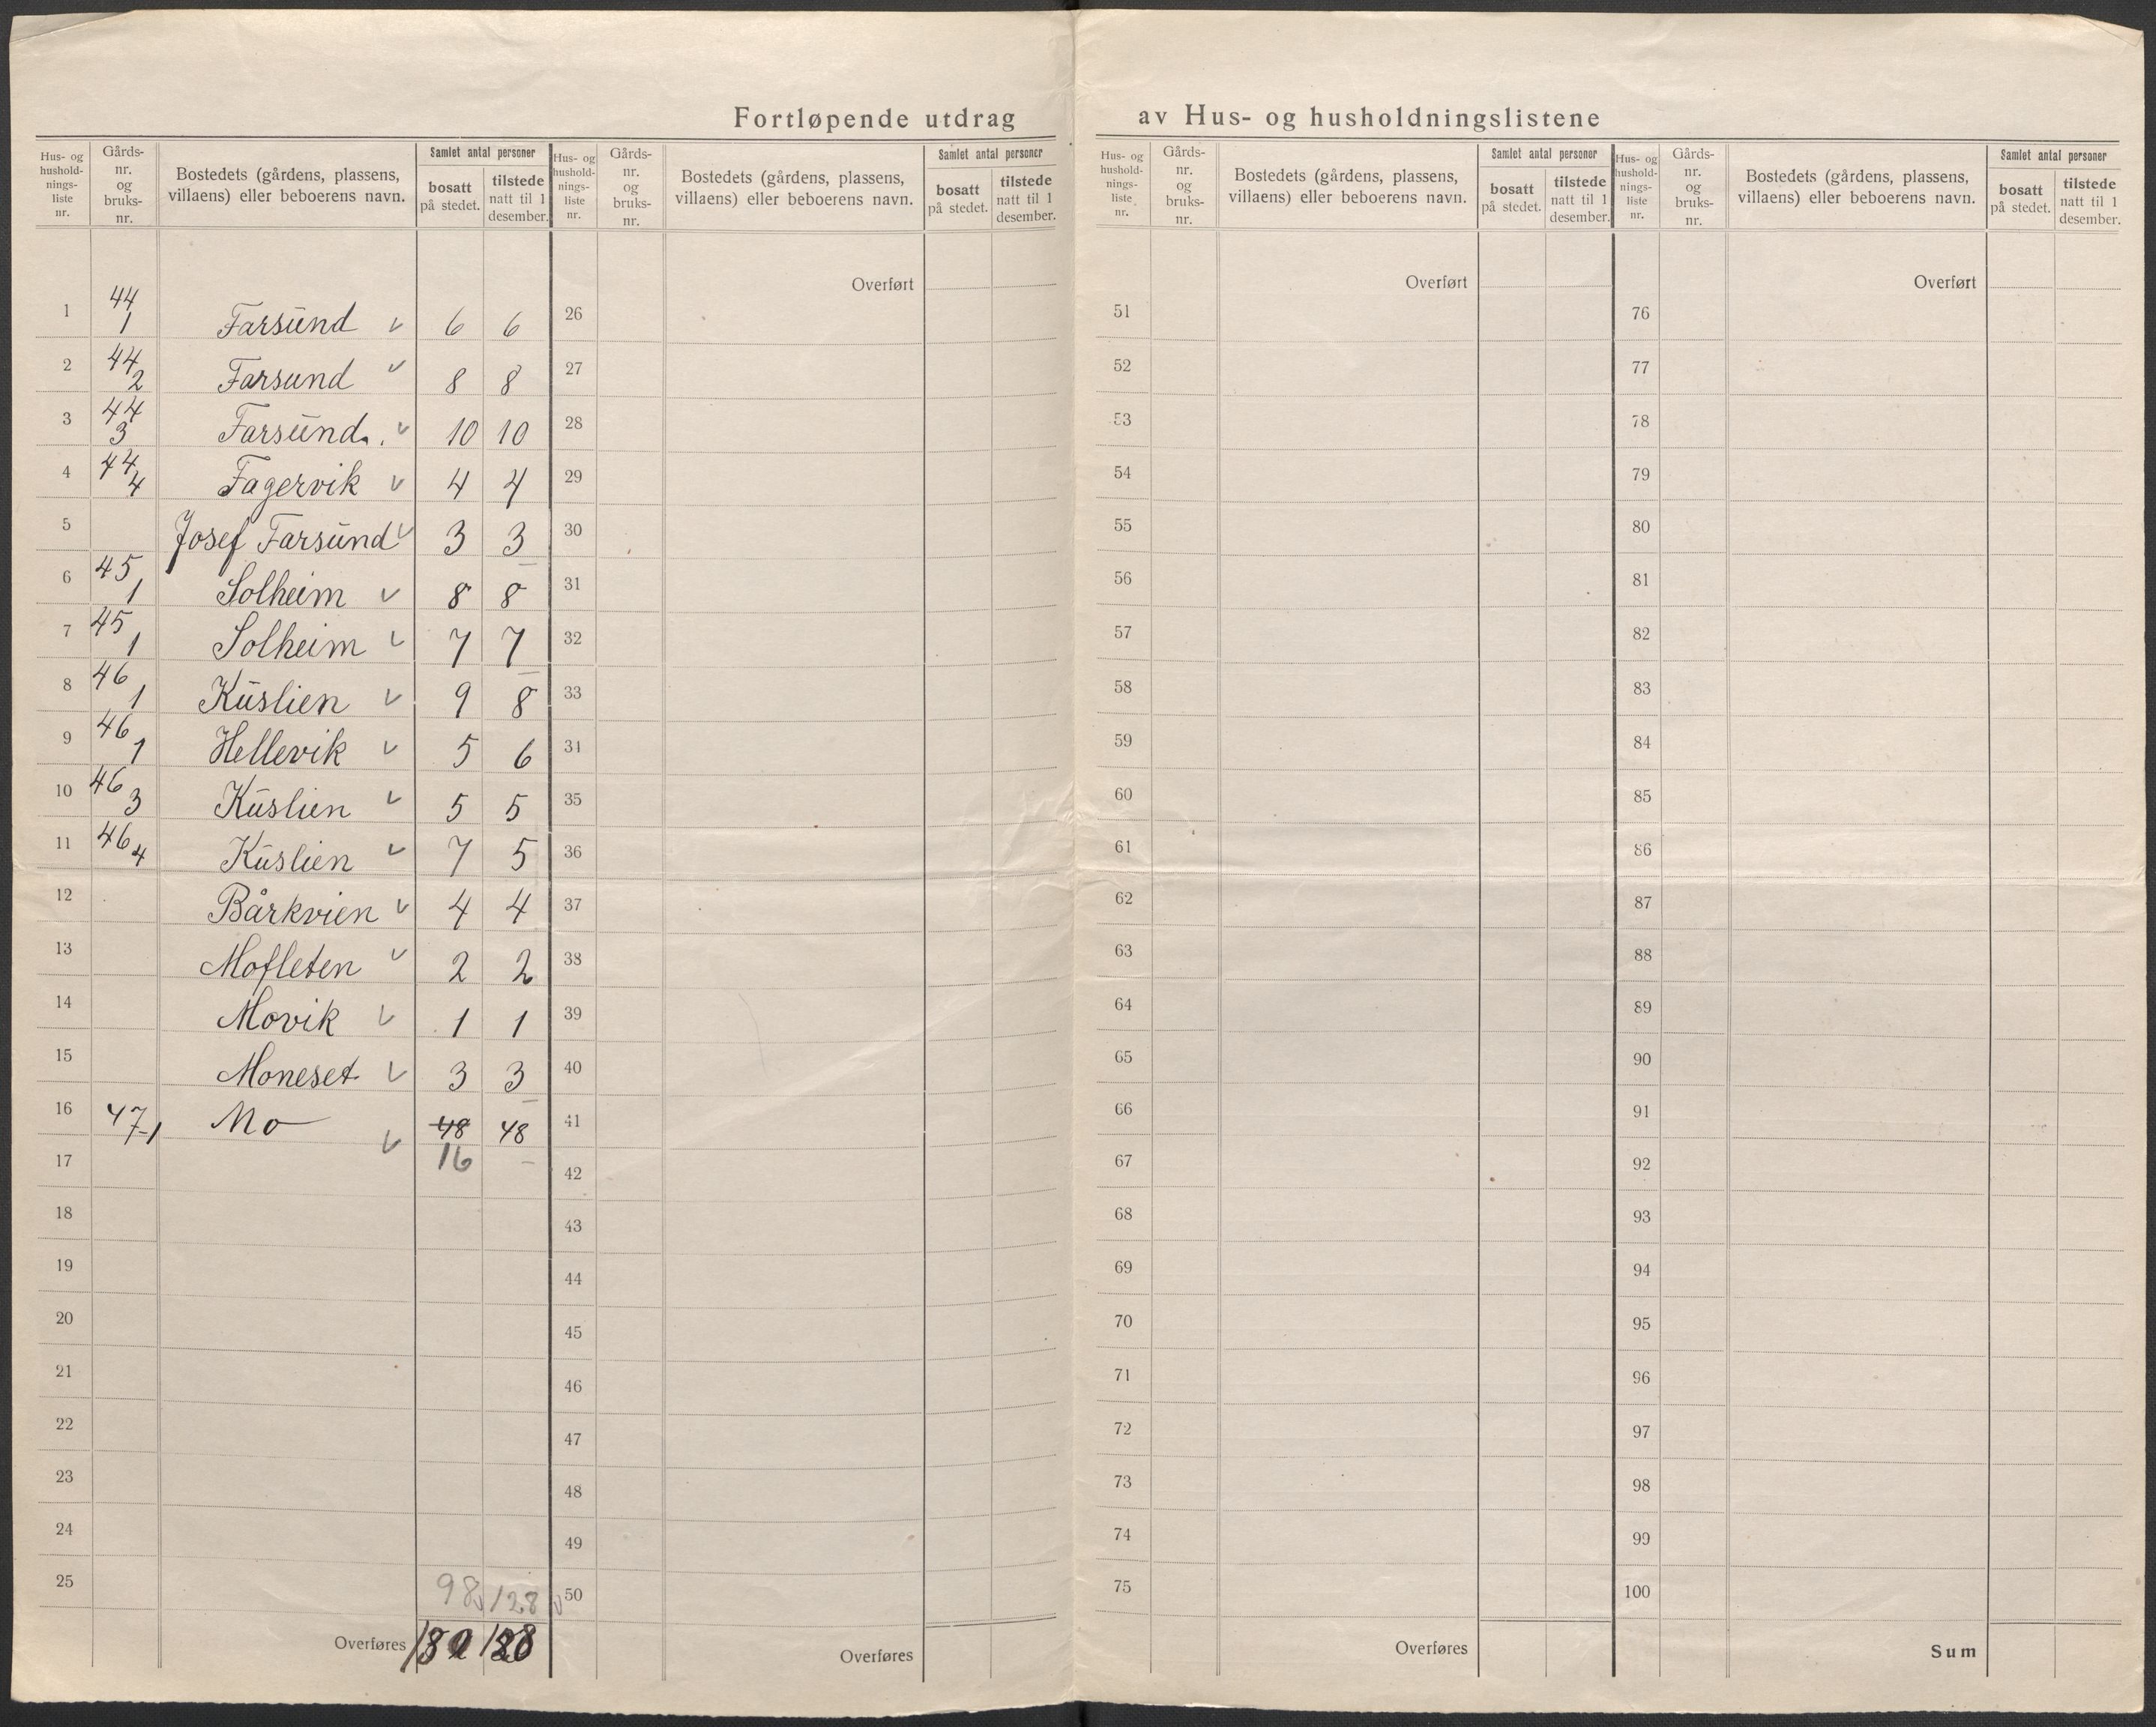 Fortløpende utdrag av Hus- og husholdningslistene
Hus- og hushold-nings-liste nr. Gårds-nr. og bruks-nr. Bostedets (gårdens, plassens, villaens) eller beboerens navn. Samlet antal personer bosatt på stedet. tilstede natt til 1 desember.
1 44 1 Farsund v 6 6
2 44 2 Farsund v 8 8
3 44 3 Farsund. v 10 10
4 44 4 Fagervik v 4 4
5 Josef Farsund v 3 3
6 45 1 Solheim v 8 8
7 45 1 Solheim v 7 7
8 46 1 Kuslien v 9 8
9 46 1 Hellevik v 5 6
10 46 3 Kuslien v 5 5
11 46 4 Kuslien v 7 5
12 Bårkvien v 4 4
13 Mofleten v 2 2
14 Movik v 1 1
15 Moneset v 3 3
16 47-1 Mo v 48 48
17 16 –
18
19
20
21
22
23
24
25 98 v 128 v
Overføres 128
Hus- og hushold-nings-liste nr. Gårds-nr. og bruks-nr. Bostedets (gårdens, plassens, villaens) eller beboerens navn. Samlet antal personer bosatt på stedet. tilstede natt til 1 desember.
Overført
26
27
28
29
30
31
32
33
34
35
36
37
38
39
40
41
42
43
44
45
46
47
48
49
50
Overføres
Hus- og hushold-nings-liste nr. Gårds-nr. og bruks-nr. Bostedets (gårdens, plassens, villaens) eller beboerens navn. Samlet antal personer bosatt på stedet. tilstede natt til 1 desember.
Overført
51
52
53
54
55
56
57
58
59
60
61
62
63
64
65
66
67
68
69
70
71
72
73
74
75
Overføres
Hus- og hushold-nings-liste nr. Gårds-nr. og bruks-nr. Bostedets (gårdens, plassens, villaens) eller beboerens navn. Samlet antal personer bosatt på stedet. tilstede natt til 1 desember.
Overført
76
77
78
79
80
81
82
83
84
85
86
87
88
89
90
91
92
93
94
95
96
97
98
99
100
Sum